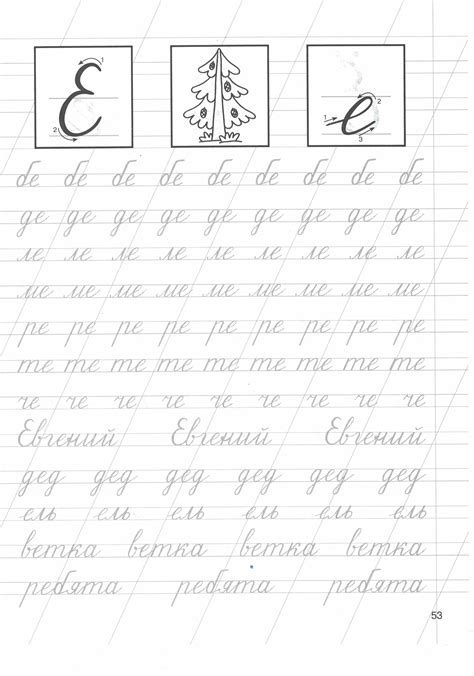 Е е
1 2 1 2 3
бе бе бе бе бе бе бе бе бе
де де де де де де де де де
ле ле ле ле ле ле ле ле ле
ме ме ме ме ме ме ме ме ме
ре ре ре ре ре ре ре ре ре
те те те те те те те те те
че че че че че че че че че
Евгений Евгений Евгений
дед дед дед дед дед дед дед
ель ель ель ель ель ель
ветка ветка ветка ветка
ребята ребята ребята
53